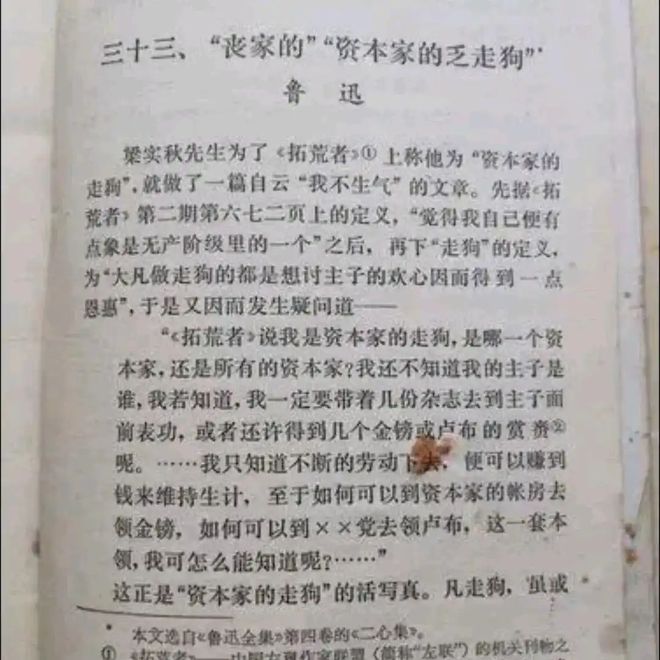 三十三、“丧家的”“资本家的乏走狗”*
鲁 迅
梁实秋先生为了《拓荒者》① 上称他为“资本家的
走狗”，就做了一篇自云“我不生气”的文章。先据《拓
荒者》第二期第六七二页上的定义，“觉得我自己便有
点象是无产阶级里的一个”之后，再下“走狗”的定义，
为“大凡做走狗的都是想讨主子的欢心因而得到一点
恩惠”，于是又因而发生疑问道——
“《拓荒者》说我是资本家的走狗，是哪一个资
本家，还是所有的资本家？我还不知道我的主子是
谁，我若知道，我一定要带着几份杂志去到主子面
前表功，或者还许得到几个金镑或卢布的赏赉②
呢。……我只知道不断的劳动下去，便可以赚到
钱来维持生计，至于如何可以到资本家的帐房去
领金镑，如何可以到××党去领卢布，这一套本
领，我可怎么能知道呢？……”
这正是“资本家的走狗”的活写真。凡走狗，虽或
本文选自《鲁迅全集》第四卷的《二心集》。
① 《拓荒者》——中国左翼作家联盟（简称“左联”）的机关刊物之